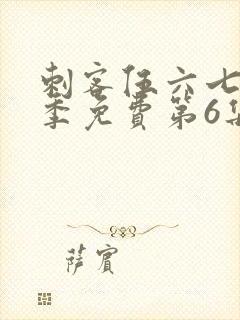 刺客伍六七
季免費第6集
萨賓